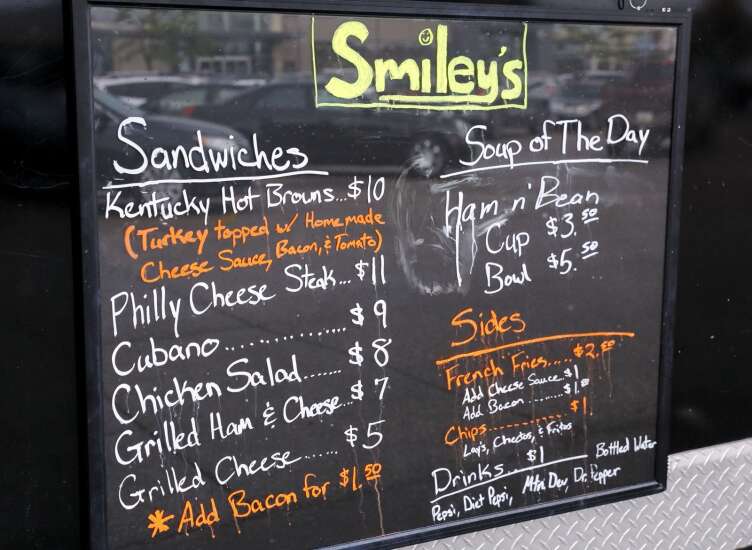 Smiley's
Sandwiches
Kentucky Hot Browns...$10
(Turkey topped w/ Homemade
Cheese Sauce, Bacon, & Tomato)
Philly Cheese Steak...$11
Cubano..............$9
Chicken Salad......$8
Grilled Ham & Cheese...$7
Grilled Cheese......$5
*Add Bacon for $1.50
Soup of The Day
Ham n' Bean
Cup $3.50
Bowl $5.50
Sides
French Fries.....$2.50
Add Cheese Sauce $1
Add Bacon.........$1.00
Chips.............$1
Lay's, Cheetos, & Fritos
Drinks...$1
Bottled Water
Pepsi, Diet Pepsi, Mtn Dew, Dr. Pepper